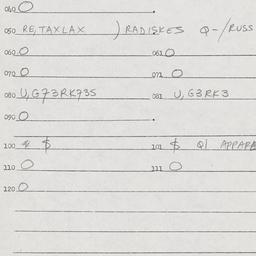 040 O
050 RE, TAXLAX ) RADISKES Q-/RUSS
060 O 061 O
070 O 071 O
080 U, G73RK73S 081 U, G3RK3
090 O
100 $ 101 $ Q1 APPARA
110 O 111 O
120 O